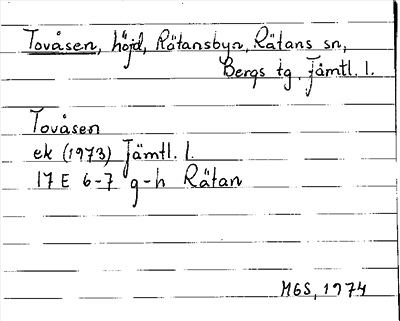 Tovåsen, höjd, Rätansbyn, Rätans sn,
Bergs tg, Jämtl. l.
Tovåsen
ek (1973) Jämtl. l.
17 E 6-7 g-h Rätan
MGS, 1974